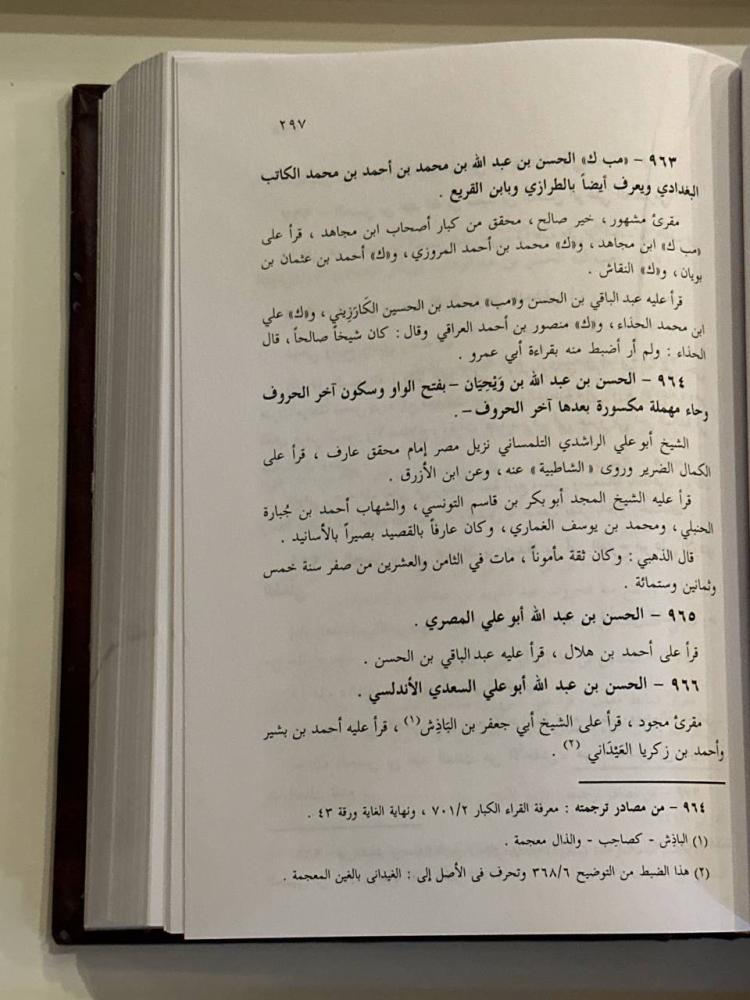 ٢٩٧
٩٦٣ - «مب ك» الحسن بن عبد الله بن محمد بن أحمد بن محمد الكاتب
البغدادي ويعرف أيضاً بالطرازي وبابن القريع .
مقرئ مشهور ، خير صالح ، محقق من كبار أصحاب ابن مجاهد ، قرأ على
«مب ك» ابن مجاهد ، و«ك» محمد بن أحمد المروزي ، و«ك» أحمد بن عثمان بن
بويان ، و«ك» النقاش .
قرأ عليه عبد الباقي بن الحسن و«مب» محمد بن الحسين الكَارَزِيني ، و«ك» علي
ابن محمد الحذاء ، و«ك» منصور بن أحمد العراقي وقال : كان شيخاً صالحاً ، قال
الحذاء : ولم أر أضبط منه بقراءة أبي عمرو .
٩٦٤ - الحسن بن عبد الله بن وَيْحِيَان - بفتح الواو وسكون آخر الحروف
وحاء مهملة مكسورة بعدها آخر الحروف - .
الشيخ أبو علي الراشدي التلمساني نزيل مصر إمام محقق عارف ، قرأ على
الكمال الضرير وروى « الشاطبية » عنه ، وعن ابن الأزرق .
قرأ عليه الشيخ المجد أبو بكر بن قاسم التونسي ، والشهاب أحمد بن جُبارة
الحنبلي ، ومحمد بن يوسف الغماري ، وكان عارفاً بالقصيد بصيراً بالأسانيد .
قال الذهبي : وكان ثقة مأموناً ، مات في الثامن والعشرين من صفر سنة خمس
وثمانين وستمائة .
٩٦٥ - الحسن بن عبد الله أبو علي المصري .
قرأ على أحمد بن هلال ، قرأ عليه عبد الباقي بن الحسن .
٩٦٦ - الحسن بن عبد الله أبو علي السعدي الأندلسي .
مقرئ مجود ، قرأ على الشيخ أبي جعفر بن البَاذِش(١) ، قرأ عليه أحمد بن بشير
وأحمد بن زكريا العَيْدَاني (٢) .
٩٦٤ - من مصادر ترجمته : معرفة القراء الكبار ٧٠١/٢ ، ونهاية الغاية ورقة ٤٣ .
(١) الباذِش - كصاحِب - والذال معجمة .
(٢) هذا الضبط من التوضيح ٣٦٨/٦ وتحرف في الأصل إلى : الغيدانى بالغين المعجمة .